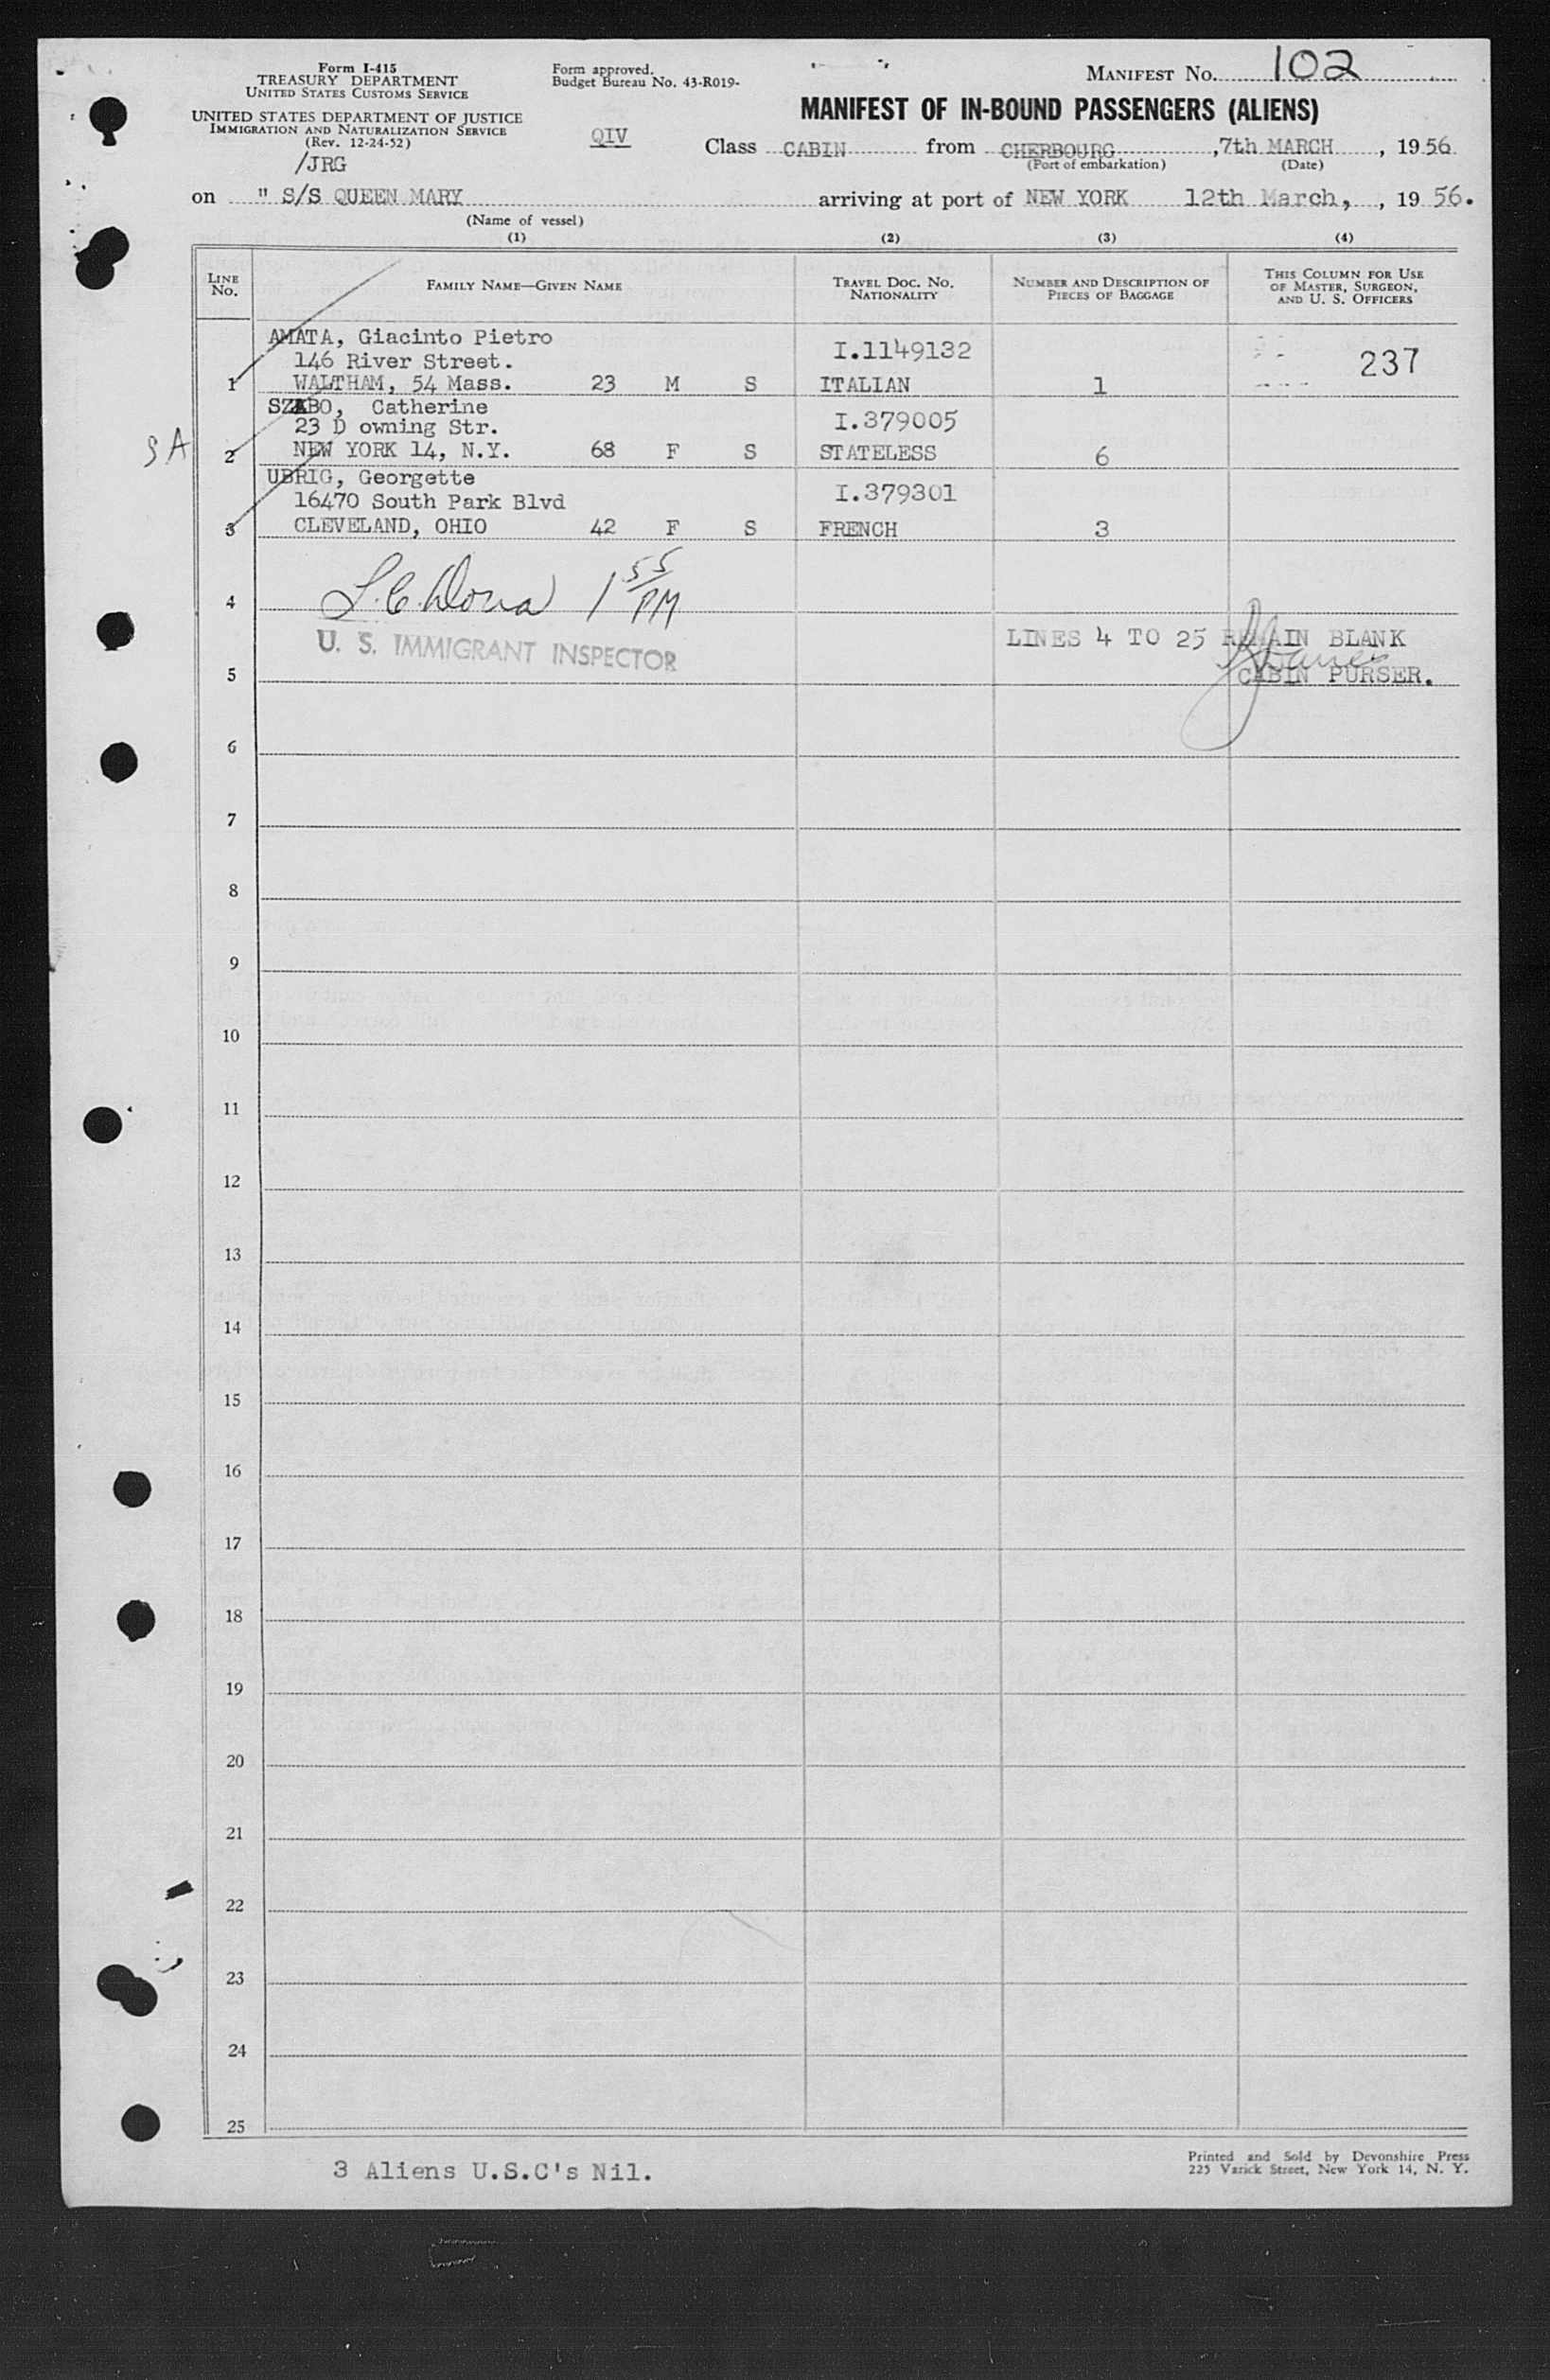 Form I-415
TREASURY DEPARTMENT
UNITED STATES CUSTOMS SERVICE
UNITED STATES DEPARTMENT OF JUSTICE
IMMIGRATION AND NATURALIZATION SERVICE
(Rev. 12-24-52)
/JRG
Form approved.
Budget Bureau No. 43-R019-
QIV
MANIFEST No. 102
MANIFEST OF IN-BOUND PASSENGERS (ALIENS)
Class CABIN from CHERBOURG, 7th MARCH, 1956
(Port of embarkation) (Date)
on " S/S QUEEN MARY arriving at port of NEW YORK 12th March, , 19 56.
(Name of vessel)
(1) (2) (3) (4)
LINE No. FAMILY NAME—GIVEN NAME TRAVEL DOC. NO. NATIONALITY NUMBER AND DESCRIPTION OF PIECES OF BAGGAGE THIS COLUMN FOR USE OF MASTER, SURGEON, AND U. S. OFFICERS
AMATA, Giacinto Pietro
146 River Street. I.1149132 237
1 WALTHAM, 54 Mass. 23 M S ITALIAN 1
SZABO, Catherine
23 D owning Str. I.379005
SA 2 NEW YORK 14, N.Y. 68 F S STATELESS 6
UBRIG, Georgette
16470 South Park Blvd I.379301
3 CLEVELAND, OHIO 42 F S FRENCH 3
4 1 55 PM
U. S. IMMIGRANT INSPECTOR
LINES 4 TO 25 REMAIN BLANK
5 CABIN PURSER.
6
7
8
9
10
11
12
13
14
15
16
17
18
19
20
21
22
23
24
25
3 Aliens U.S.C's Nil.
Printed and Sold by Devonshire Press
225 Varick Street, New York 14, N. Y.